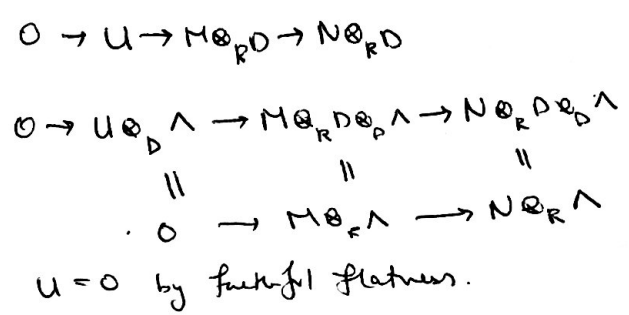 0 → U → M⊗_R D → N⊗_R D
0 → U⊗_D Λ → M⊗_R D⊗_D Λ → N⊗_R D⊗_D Λ
|| || ||
0 → M⊗_R Λ → N⊗_R Λ
U = 0 by faithful flatness.